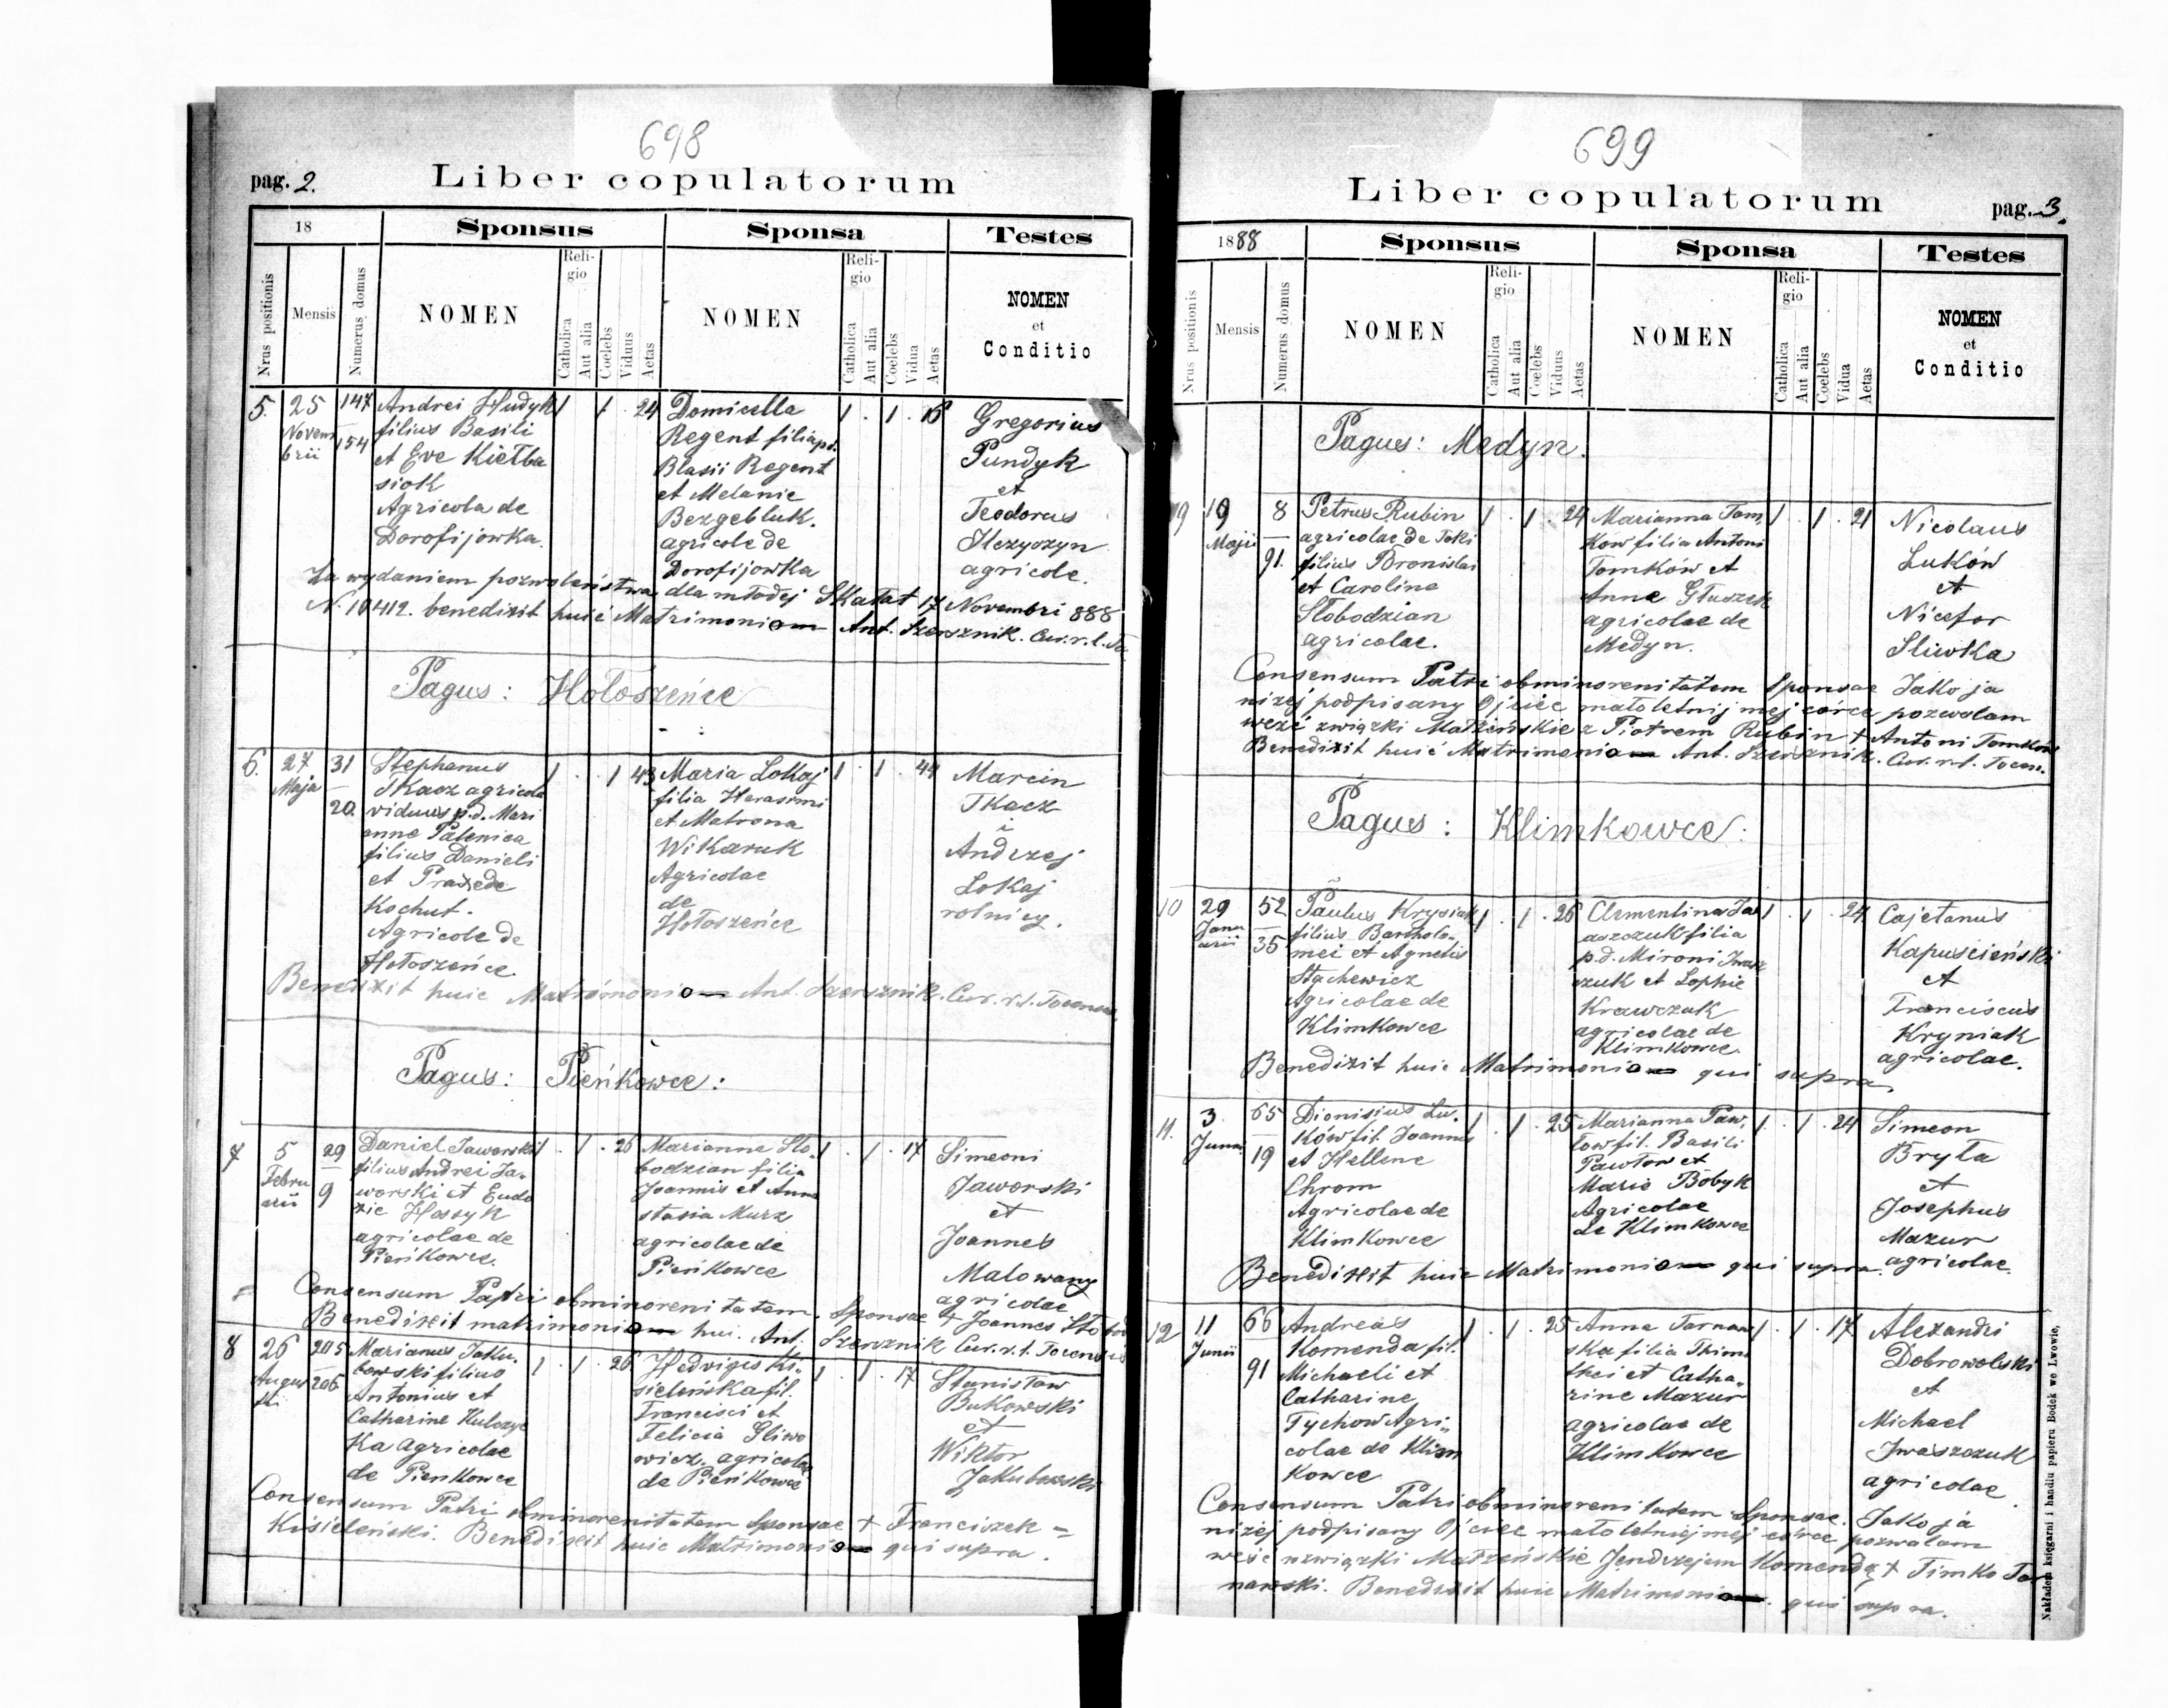 698
pag. 2.
Liber copulatorum
18
Sponsus
Sponsa
Testes
Nrus positionis
Mensis
Numerus domus
NOMEN
Reli-
gio
Catholica
Aut alia
Coelebs
Viduus
Aetas
NOMEN
Reli-
gio
Catholica
Aut alia
Coelebs
Vidua
Aetas
NOMEN
et
Conditio
5.
25
Novem
brii
147
154
Andrei Hudyk
filius Basili
et Eve Kiełba
siok
Agricola de
Dorofijowka.
1 1 . 24
Domicella
Regent filia p.d.
Blasii Regent
et Melanie
Bezgebluk.
agricole de
Dorofijowka
1 . 1 . 16
Gregorius
Pundyk
et
Teodorus
agricole.
Za wydaniem pozwoleństwa dla młodej Skałat 17 Novembri 888
N. 10412. benedixit huić Matrimoniom Ant. Szersznik. Cur. r. l.
Pagus: Hołoszeńce
6.
27
Maja
31
20.
Stephanus
Tkacz agricola
viduus p.d. Mari
anne Palenica
filius Danieli
et Praxede
Kochut.
Agricole de
Hołoszeńce.
1 . . 1 43
Maria Lokaj
filia Harasimi
et Matrona
Wikaruk
Agricolae
de
Hołoszeńce
1 . 1 . 44
Marcin
Tkacz
i
Andrzej
Lokaj
rolnicy.
Benedixit huic Matrimoniom Ant. Szersznik. Cur. r. l.
Pagus: Pieńkowce:
7
5
Febru
arii
29
9
Daniel Jaworski
filius Andrei Ja-
worski et Eudo
xie Hassyk
agricolae de
Pieńkowce.
1 . 1 . 26
Marianna Sło-
bodzian filia
Joannis et Anna
stasia Murz
agricolae de
Pieńkowce
1 . 1 . 17
Simeoni
Jaworski
et
Joannes
Malowany
agricolae
Consensum Patri obminorenitatem Sponsae + Joannes
Benedixit matrimoniom hui. Ant. Szersznik Cur. r. l.
8
26
Augus
ti
205
206
Marianus Jaku-
bowski filius
Antonius et
Catharine Kulczyc
ka agricolae
de Pieńkowce
1 . 1 . 26
Hedvigis Ki-
sieleńska fil.
Francisci et
Felicia Śliwo
wicz. agricolae
de Pieńkowce
1 . 1 . 17
Stanisław
Bukowski
et
Wiktor
Jakubowski
Consensum Patri obminorenitatem Sponsae + Franciszek =
Kisieleński. Benedixit huic Matrimoniom qui supra.
699
Liber copulatorum
pag. 3.
1888
Sponsus
Sponsa
Testes
Nrus positionis
Mensis
Numerus domus
NOMEN
Reli-
gio
Catholica
Aut alia
Coelebs
Viduus
Aetas
NOMEN
Reli-
gio
Catholica
Aut alia
Coelebs
Vidua
Aetas
NOMEN
et
Conditio
Pagus: Medyn.
9
19
Maji
8
91.
Petrus Rubin
agricolae de Toki
filius Bronislai
et Caroline
Słobodzian
agricolae.
1 . 1 . 24
Marianna Tom,
kow filia Antoni
Tomkow et
Anne Głuszek
agricolae de
Medyn.
1 . 1 . 21
Nicolaus
Luków
et
Nicefor
Sliwka
Consensum Patri obminorenitatem Sponsae Jako ja
niżej podpisany Ojciec małoletnij mej córce pozwolam
weźć związki Małżeńskie z Piotrem Rubin + Antoni Tomków
Benedixit huić Matrimoniom Ant. Szersznik. Cur. r. l.
Pagus: Klimkowce:
10
29
Janu
arii
52
35
Paulus Krysiak
filius Bartholo-
mei et Agnetis
Stachewicz
Agricolae de
Klimkowce
1 . 1 . 26
Clementina
filia
p.d. Mironi Iwasz
czuk et Sophie
Krawczuk
agricolae de
Klimkowce.
1 . 1 . 24
Cajetanus
Kapuścieński
et
Franciscus
Kryniak
agricolae.
Benedixit huic Matrimoniom qui supra.
11.
3.
Junii
65
19
Dionisius Lu-
ków fil. Joannes
et Hellene
Chrom
Agricolae de
Klimkowce
1 . 1 . 25
Marianna Paw,
łow fil. Basili
Pawłow et
Mario Bobyk
Agricolae
de Klimkowce
1 . 1 . 24
Simeon
Bryła
et
Josephus
Mazur
agricolae.
Benedixit huic Matrimoniom qui supra.
12
11
Junii
66
91
Andreas
Komenda fil.
Michaeli et
Catharine
Tychow Agri-
colae de Klim
kowce
1 . 1 . 25
Anna Tarnaw
ska filia Thimo
thei et Catha-
rine Mazur
agricolae de
Klimkowce
1 . 1 . 17
Alexandri
Dobrowolski
et
Michael
Iwaszczuk
agricolae.
Consensum Patri obminorenitatem Sponsae. Jako ja
niżej podpisany Ojciec małoletniej mej córce pozwalam
weźc związki Małżeńskie Jendrzejem Komendą + Timko Tar
nawski. Benedixit huic Matrimoniom qui supra.
Nakładem księgarni i handlu papieru Bodek we Lwowie,